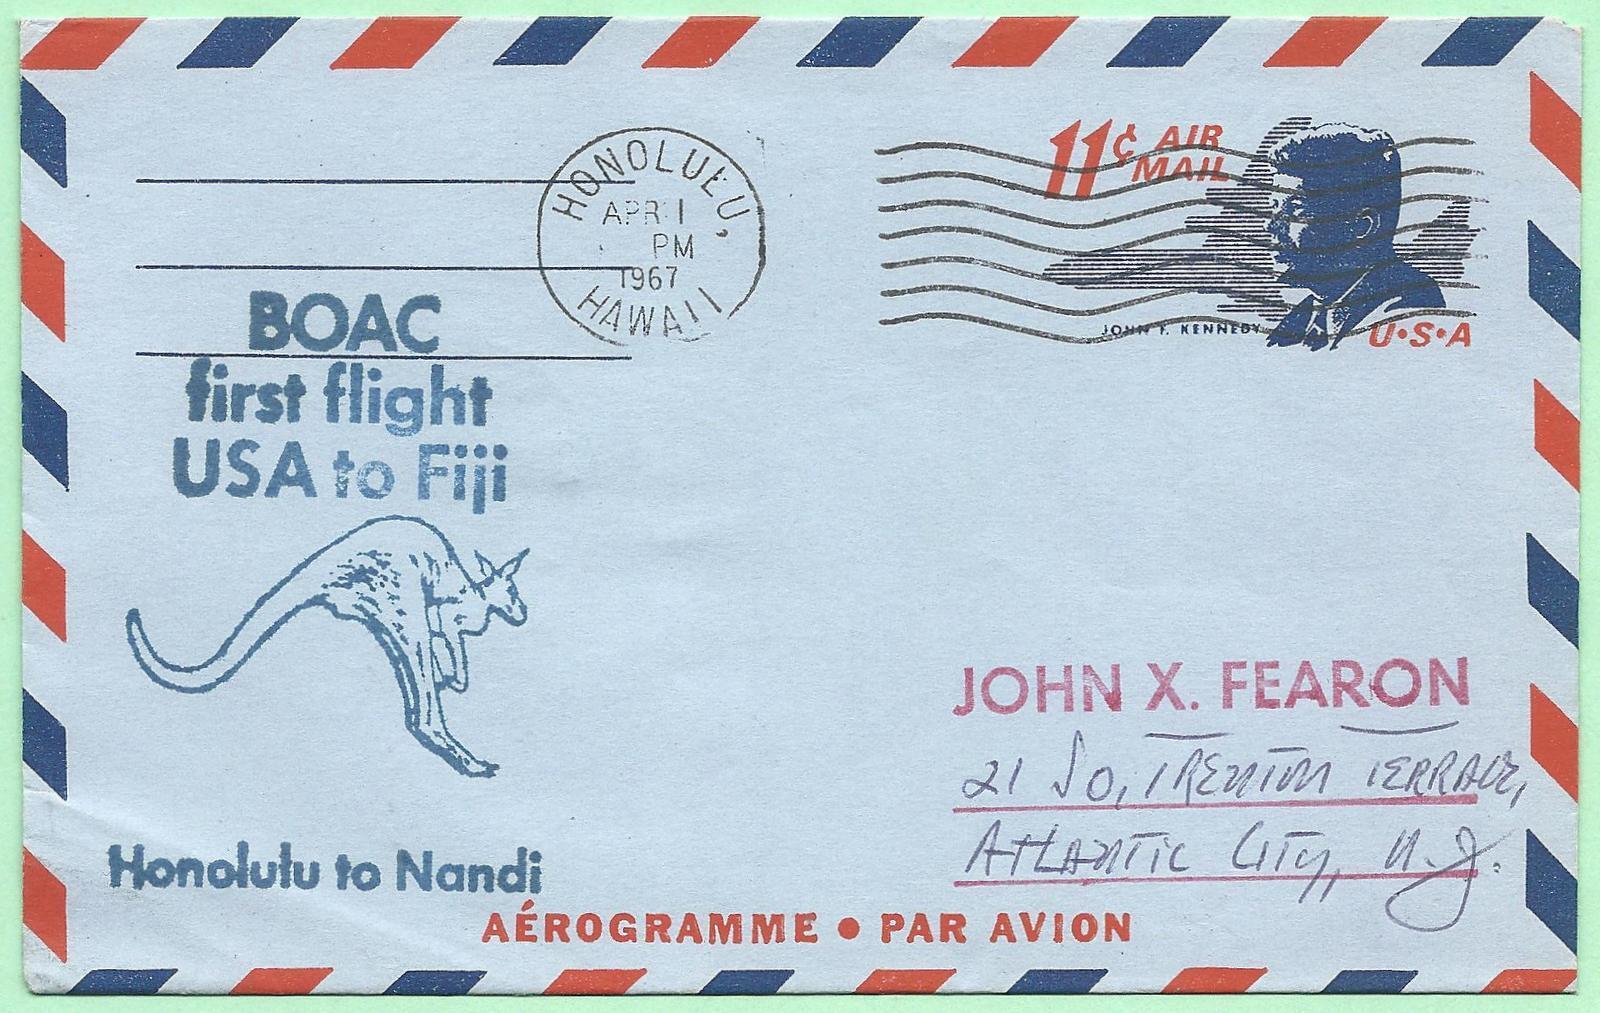 HONOLULU,
APR 1
PM
1967
HAWAII
11¢ AIR
MAIL
JOHN F. KENNEDY
U·S·A
BOAC
first flight
USA to Fiji
Honolulu to Nandi
JOHN X. FEARON
21 So, TRENTON TERRACE,
ATLANTIC CITY, N.J.
AÉROGRAMME • PAR AVION